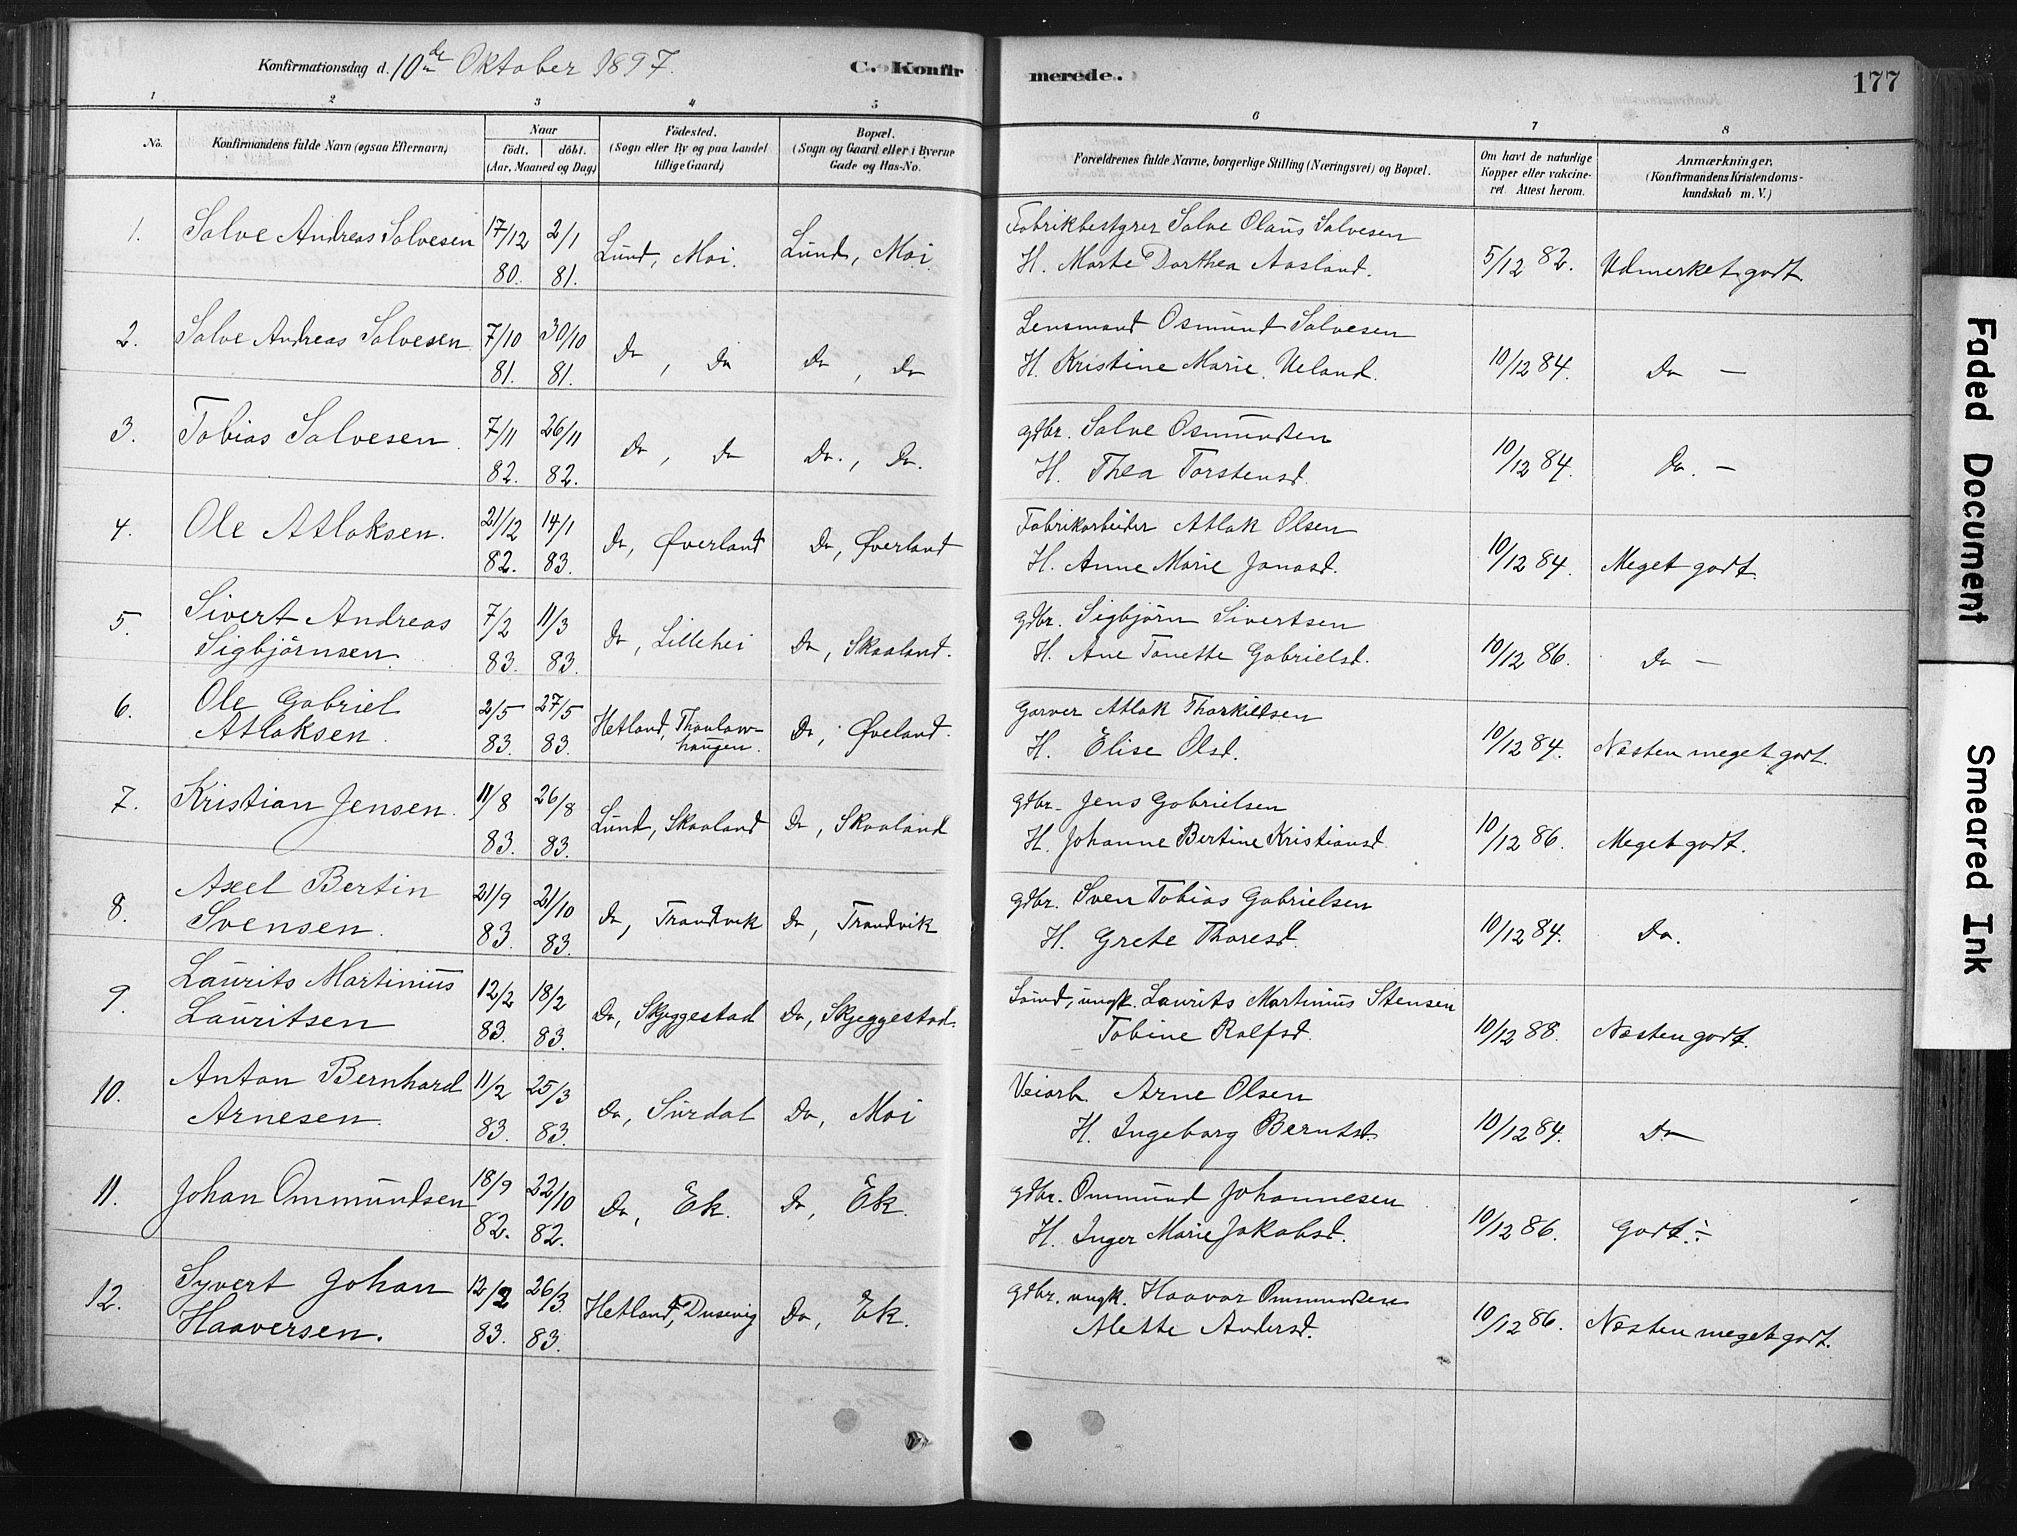 Konfirmationsdag d. 10de Oktober 1897. C. Konfirmerede. 177
1 2 3 4 5 6 7 8
No. Konfirmandens fulde Navn (ogsaa Efternavn)
Naar
födt. döbt.
(Aar, Maaned og Dag)
Födested.
(Sogn eller By og paa Landet
tillige Gaard)
Bopæl.
(Sogn og Gaard eller i Byerne
Gade og Hus-No.
Forældrenes fulde Navne, borgerlige Stilling (Næringsvei) og Bopæl.
Om havt de naturlige
Kopper eller vakcine-
ret. Attest herom.
Anmærkninger.
(Konfirmandens Kristendoms-
kundskab m. V.)
1. Salve Andreas Salvesen 17/12 80. 2/1 81. Lund, Moi. Lund, Moi. Fabrikbestyrer Salve Olaus Salvesen
H. Marte Dorthea Aasland. 5/12 82. Udmerket godt.
2. Salve Andreas Salvesen 7/10 81. 30/10 81. Do, Do Do, Do Lensmand Osmund Salvesen
H. Kristine Marie Ueland. 10/12 84. Do —
3. Tobias Salvesen. 7/11 82. 26/11 82. Do, Do Do., Do. gdbr. Salve Osmundsen
H. Thea Torstensd. 10/12 84. Do. —
4. Ole Atlaksen. 21/12 82. 14/1 83. Do, Øverland Do, Øverland Fabrikarbeider Atlak Olsen
H. Anne Marie Jonasd. 10/12 84. Meget godt.
5. Sivert Andreas
Sigbjörnsen. 7/2 83. 11/3 83. Do, Lillehei Do, Skaaland. gdbr. Sigbjörn Sivertsen
H. Ane Tonette Gabrielsd. 10/12 86. Do —
6. Ole Gabriel
Atlaksen. 2/5 83. 27/5 83. Hetland, Thaulow-
haugen. Do, Øveland. Garver Atlak Thorkildsen
H. Elise Olsd. 10/12 84. Næsten meget godt.
7. Kristian Jensen. 11/8 83. 26/8 83. Lund, Skaaland Do, Skaaland gdbr. Jens Gabrielsen
H. Johanne Bertine Kristiansd. 10/12 86. Meget godt.
8. Axel Bertin
Svensen. 21/9 83. 21/10 83. Do, Trandvik Do, Trandvik gdbr. Sven Tobias Gabrielsen
H. Grete Thoresd. 10/12 84. Do.
9. Laurits Martinius
Lauritsen 12/2 83. 18/2 83. Do, Skjeggestad Do, Skjeggestad. ungk. Laurits Martinius Stensen
Tobine Rolfsd. 10/12 88. Næsten godt.
10. Anton Bernhard
Arnesen. 11/2 83. 25/3 83. Do, Surdal Do, Moi Veiarb. Arne Olsen
H. Ingeborg Berntsd. 10/12 84. Do
11. Johan Ommundsen 18/9 82. 22/10 82. Do, Ek. Do, Ek. gdbr. Ommund Johannesen
H. Inger Marie Jakobsd. 10/12 86. Godt ÷
12. Syvert Johan
Haaversen. 12/2 83. 26/3 83. Hetland, Dusevig Do, Ek. gdbr. ungk. Haavar Ommundsen
Alette Andersd. 10/12 86. Næsten meget godt.
Faded Document
Smeared Ink